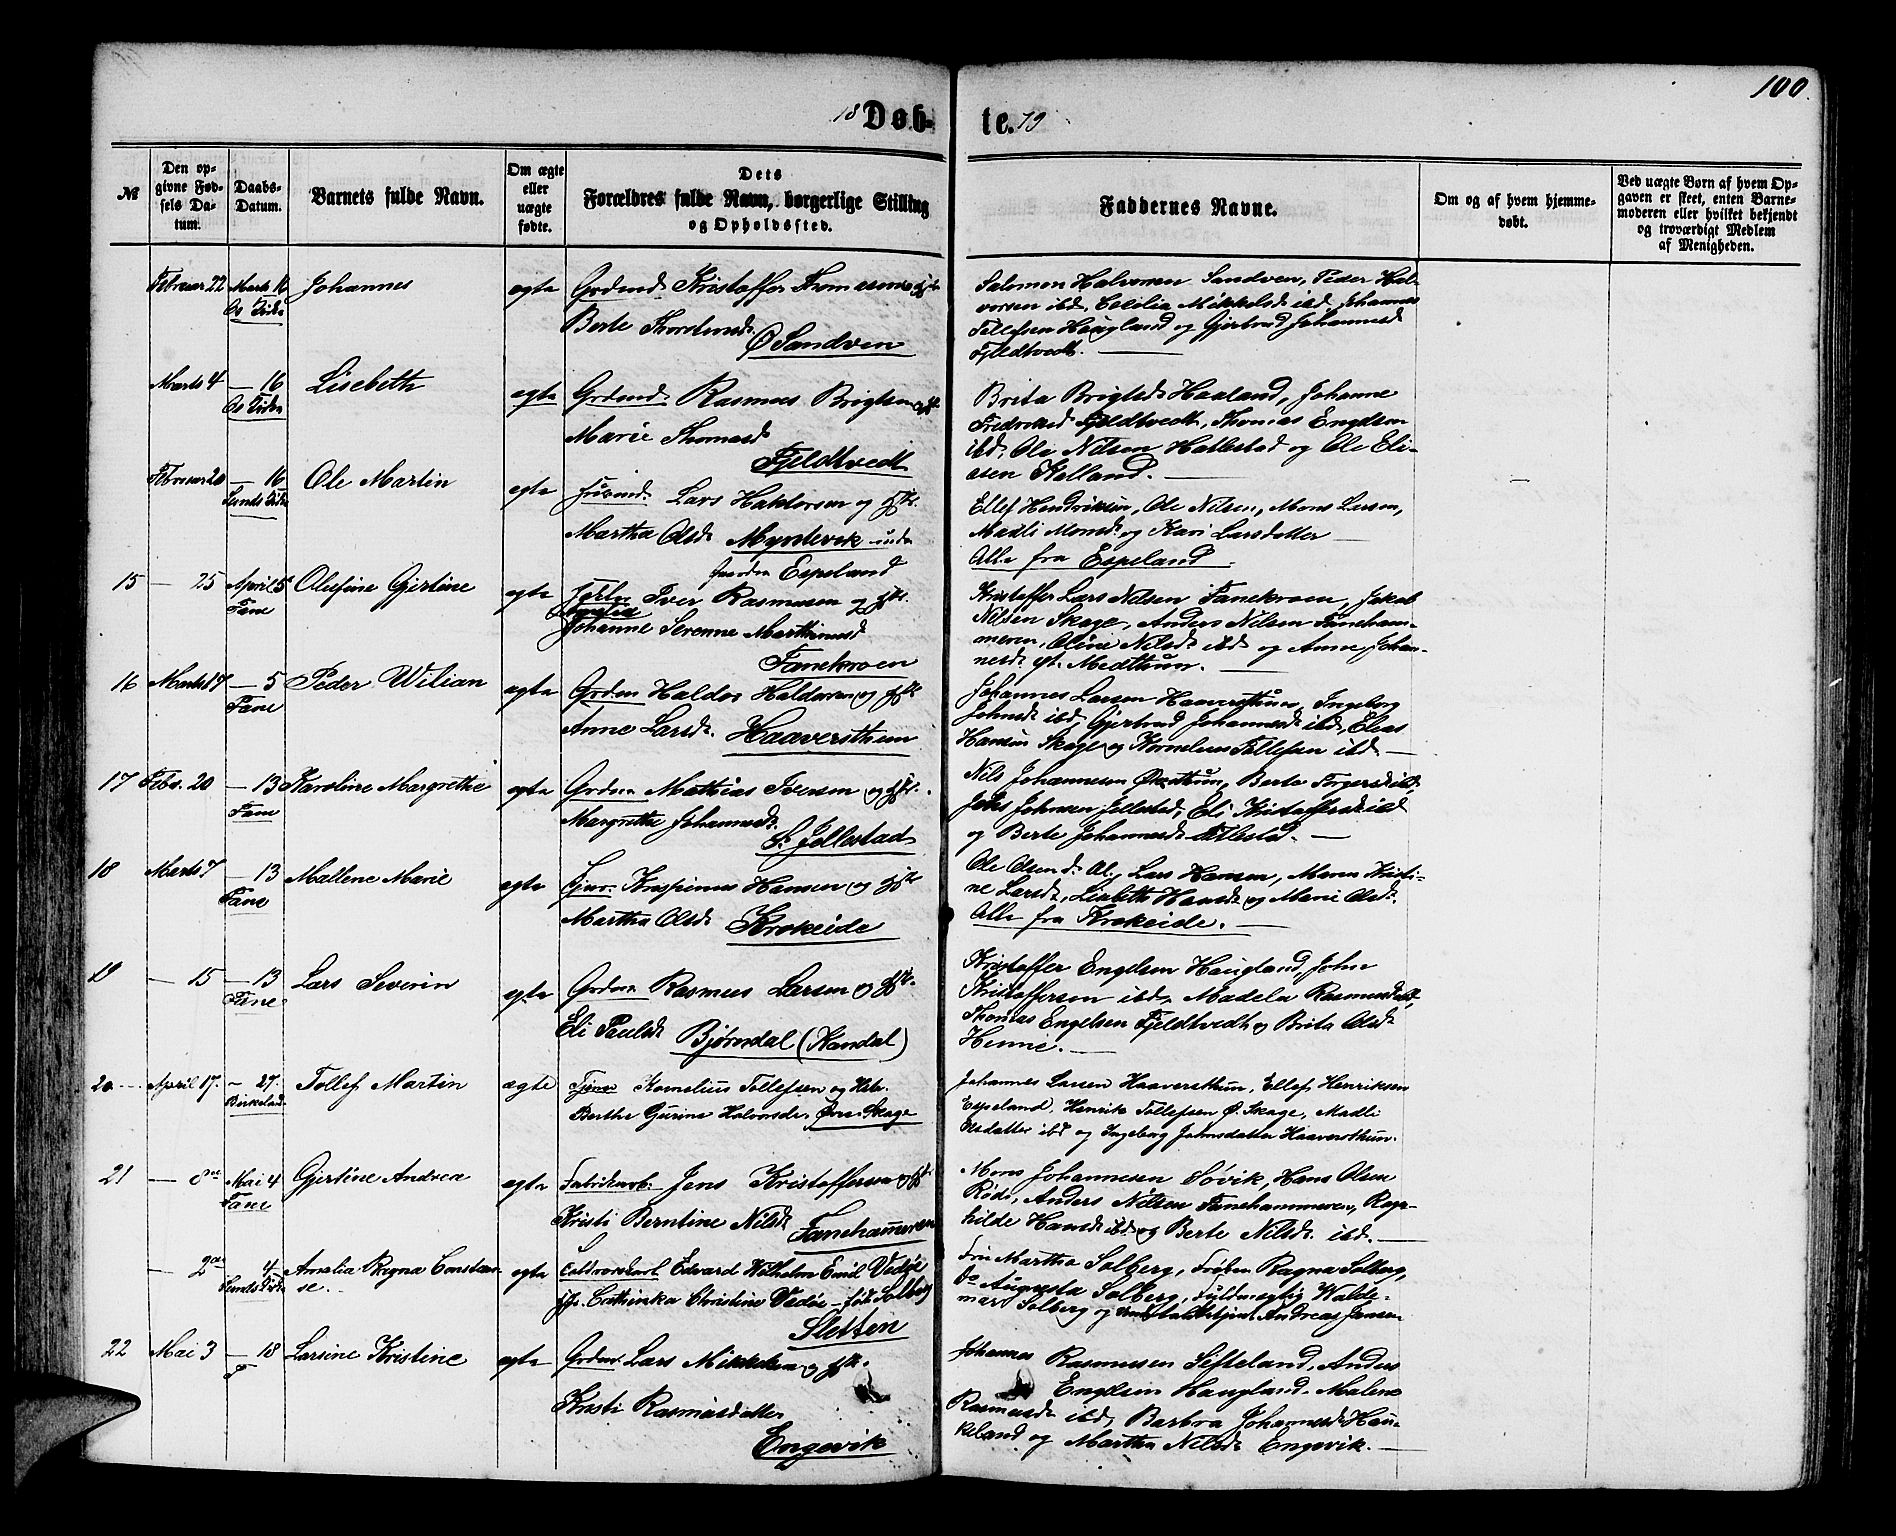 100.
18 Døb-
te. 79
№
Den op-
givne Fød-
sels Da-
tum.
Daabs-
Datum.
Barnets fulde Navn.
Om ægte
eller
uægte
fødte.
Dets
Forældres fulde Navn, borgerlige Stilling
og Opholdssted.
Faddernes Navne.
Om og af hvem hjemme-
døbt.
Ved uægte Børn af hvem Op-
gaven er skeet, enten Barne-
moderen eller hvilket bekjendt
og troværdigt Medlem
af Menigheden.
Februar 22 Marts 16 Johannes ægte Grdmd. Kristoffer Thomassen og
Os Kirke
Berte Thorstensd.
Ø Sandven
Salomon Halvorsen Sandven, Peder Hal-
vorsen ibd, Cecilia Mikkelsd ibd Johannes
Tollefsen Haugland og Gjertrud Johannesd
Fjeldtvedt.
Marts 4 — 16 Lisebeth ægte Grdmd. Rasmus Brigtsen og
Os Kirke
Marie Thomasd
Fjeldtvedt
Brita Brigtsd Haaland, Johanne
Fredriksd Fjeldtvedt, Thomas Engelsen
ibd, Ole Nilsen Hallestad og Ole Eli-
asen Kalland.
Februar 20 — 16 Ole Martin ægte Lars Haktorsen og
Sunds Kirke
Martha Olsd. Myrdevik under
Espeland
Ellef Hendriksen, Ole Nilsen, Mons Larsen,
Madli Monsd og Kari Larsdatter
Alle fra Espeland.
15 — 25 April 5 Olefine Gjertine ægte Iver Rasmusen og
Fane
Johanne Serenne Marthinusd
Fanekroen
Kristoffer Lars Nilsen Fanekroen, Jakob
Nilsen Skage, Anders Nilsen Faneham-
meren, Oline Nilsd. ibd og Anne Johan-
nesd. Midthun.
16 Marts 17 — 5 Peder Wilian ægte Grdm Haldor Haldorsen og
Fane
Anne Larsd. Haaversthun
Johannes Larsen Haaversthun, Ingeborg
Johnsd ibd, Gjertrud Johannesd ibd, Elias
Hansen Skage og Kornelius Tollefsen ibd
17 Febr. 20 — 13 Karoline Margrethe ægte Grdm Mathias Iversen og
Fane
Margretha Johannesd.
Jellestad
Nils Johannesen Øvsthun, Berta Torgersd ibd,
Johs Johnsen Jellestad, Eli Kristoffersd ibd
og Berte Johannesd Titlestad.
18 Marts 7 — 13 Mallene Marie ægte Krispinus Hansen og
Fane
Martha Olsd. Krokeide
Ole Olsen d. Al., Lars Hansen, Maren Kristi-
ne Larsd., Lisbeth Hansd og Marie Olsd.
Alle fra Krokeide.
19 — 15 — 13 Lars Severin ægte Grdm Rasmus Larsen og
Fane
Eli Paulsd Bjørndal (Kandal)
Kristoffer Engelsen Haugland, John
Kristoffersen ibd, Madela Rasmusd ibd,
Thomas Engelsen Fjeldtvedt og Brita Olsd.
Hevnie.
20 April 17. — 27. Tollef Martin ægte Kornelius Tollefsen og
Birkeland
Berthe Gurine Halvorsd. Øvre Skage
Johannes Larsen Haaversthun, Ellef Henriksen
Espeland, Henrik Tollefsen Ø. Skage, Madli
Olsdatter ibd og Ingeborg Johnsdatter Haaversthun.
21 — 8de Mai 4 Gjertine Andrea ægte Fabrikarb. Jens Kristoffersen og
Fane
Kristi Berntine Nilsd Fanehammeren
Mons Johannesen Søvik, Hans Olsen
Røde, Anders Nilsen Fanehammeren, Ragn-
hilde Hansd ibd. og Berte Nilsd. ibd.
— 2den 4 Amalia Regna Constan- ægte Edvard Wilhelm Emil Vedøe
Sunds Kirke se.
Cathinka Christine Vedøe født Solberg
Sletten
Fru Martha Solberg, Frøken Ragna Solberg,
do Augusta Solberg, Fuldmægtig Walde-
mar Solberg og Andreas Jansen
22 Mai 3 — 18 Larsine Kristine ægte Grdm. Lars Mikkelsen og
F
Kristi Rasmusdatter
Engevik
Johannes Rasmussen Sefteland, Anders
Engelsen Haugland. Malene
Rasmusd ibd, Barbra Johannesd Hau-
keland og Martha Nilsd Engevik.